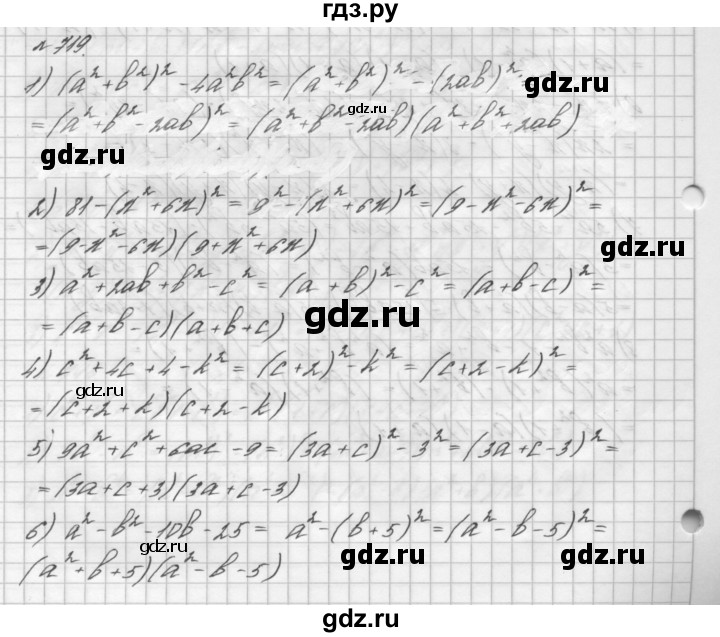 гдз.ру
№ 719.
1) (a² + b²)² - 4a²b² = (a² + b²)² - (2ab)² =
gdz.ru
gdz.ru
= (a² + b² - 2ab)² = (a² + b² - 2ab)(a² + b² + 2ab)
gdz.ru
2) 81 - (x² + 6x)² = 9² - (x² + 6x)² = (9 - x² - 6x)² =
= (9 - x² - 6x)(9 + x² + 6x)
gdz.ru
3) a² + 2ab + b² - c² = (a + b)² - c² = (a + b - c)² =
= (a + b - c)(a + b + c)
gdz.ru
4) c² + 4c + 4 - k² = (c + 2)² - k² = (c + 2 - k)² =
gdz.ru
= (c + 2 + k)(c + 2 - k)
5) 9a² + c² + 6ac - 9 = (3a + c)² - 3² = (3a + c - 3)² =
= (3a + c + 3)(3a + c - 3)
6) a² - b² - 10b - 25 = a² - (b + 5)² = (a² - b - 5)² =
gdz.ru
gdz.ru
gdz.ru
(a² + b + 5)(a² - b - 5)
gdz.ru